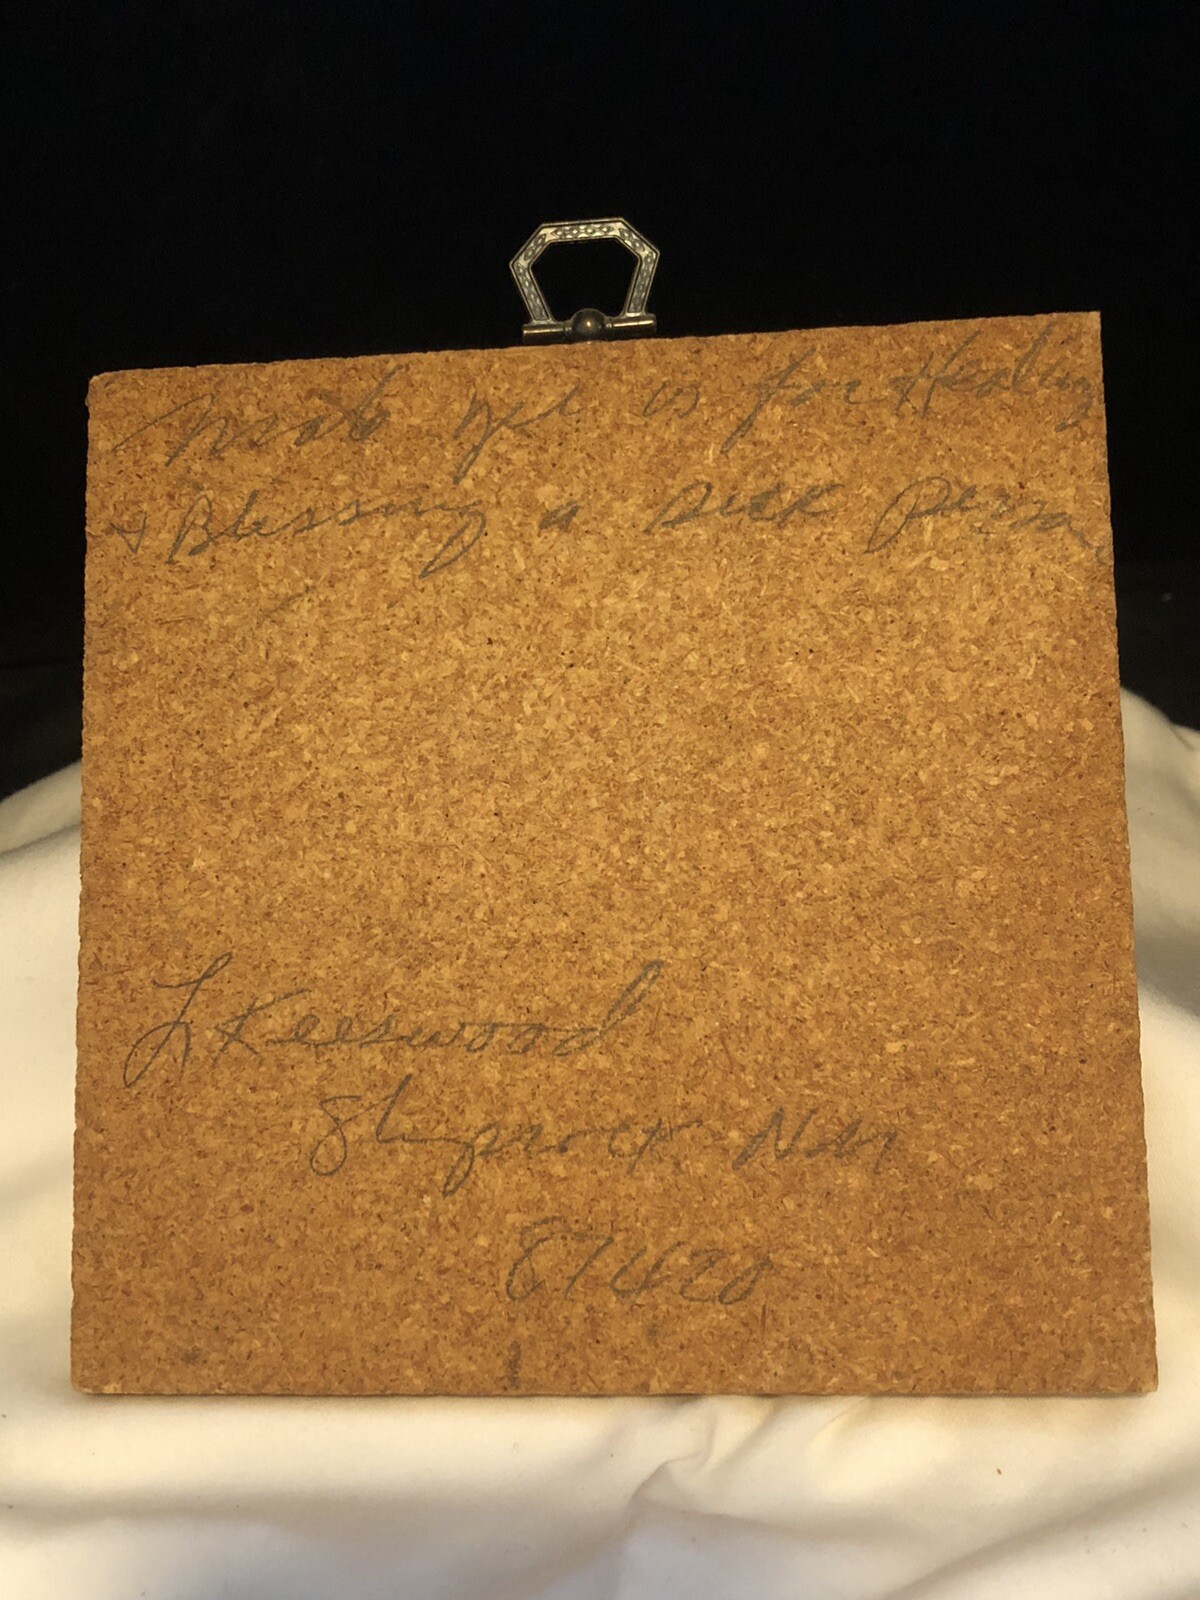 is for Healing
& Blessing a sick person
L Keeswood
Shiprock NM
87420